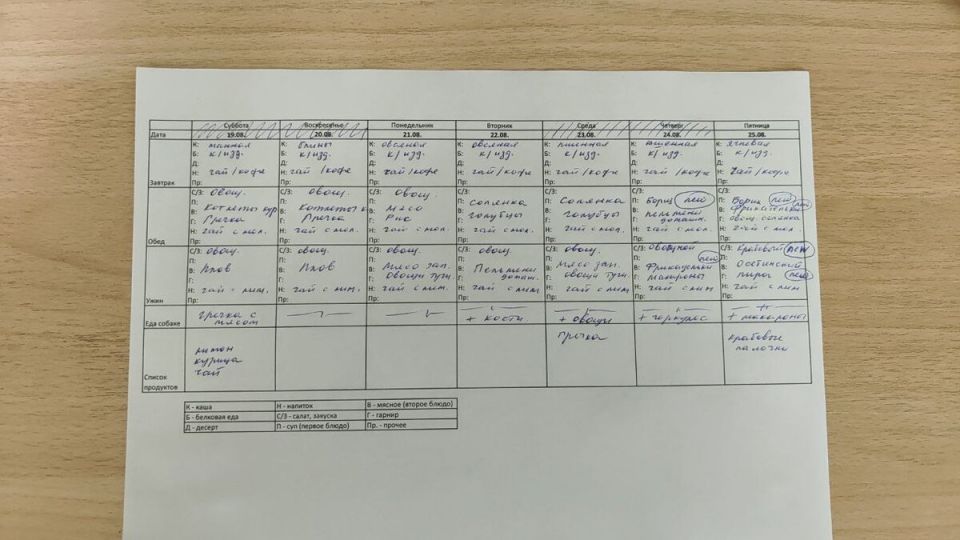 Суббота Воскресенье Понедельник Вторник Среда Четверг Пятница
Дата 19.08. 20.08. 21.08. 22.08. 23.08. 24.08. 25.08.
К: манная К: блины К: овсяная К: овсяная К: пшенная К: пшенная К: ячневая
Б: к/изд. Б: к/изд. Б: к/изд. Б: к/изд. Б: к/изд. Б: к/изд. Б: к/изд.
Д: Д: Д: Д: Д: Д: Д:
Н: чай/кофе Н: чай/кофе Н: чай/кофе Н: чай/кофе Н: чай/кофе Н: чай/кофе Н: чай/кофе
Завтрак Пр: Пр: Пр: Пр: Пр: Пр: Пр:
С/З: овощ. С/З: овощ. С/З: овощ. С/З: С/З: С/З: С/З:
П: П: П: П: солянка П: Солянка П: Борщ new П: Борщ new
В: Котлеты кур В: Котлеты к В: Мясо В: голубцы В: голубцы В: пельмени домашн. В: new
Г: Гречка Г: Гречка Г: Рис Г: Г: Г: Г: овощ. солянка
Н: чай с мол. Н: чай с мол. Н: чай с мол. Н: чай с мол. Н: чай с мол. Н: чай с мол. Н: чай с мол.
Обед Пр: Пр: Пр: Пр: Пр: Пр: Пр:
С/З: овощ. С/З: овощ. С/З: овощ. С/З: овощ. С/З: овощ. С/З: овощной С/З: крабовый new
П: П: П: П: П: П: new П:
В: Плов В: Плов В: Мясо зап. В: Пельмени В: Мясо зап. В: Фрикадельки В: Осетинский
Г: Г: Г: овощи туш. Г: домаш. Г: овощи туш. Г: макароны Г: пирог new
Н: чай с лим. Н: чай с лим. Н: чай с лим. Н: чай с лим Н: чай с лим Н: чай с лим Н: чай с лим
Ужин Пр: Пр: Пр: Пр: Пр: Пр: Пр:
Еда собаке гречка с мясом —"— —"— —"— + кости —"— + овощи —"— + геркулес —"— + макароны
лимон гречка крабовые
курица палочки
чай
Список
продуктов
К - каша Н - напиток В - мясное (второе блюдо)
Б - белковая еда С/З - салат, закуска Г - гарнир
Д - десерт П - суп (первое блюдо) Пр. - прочее